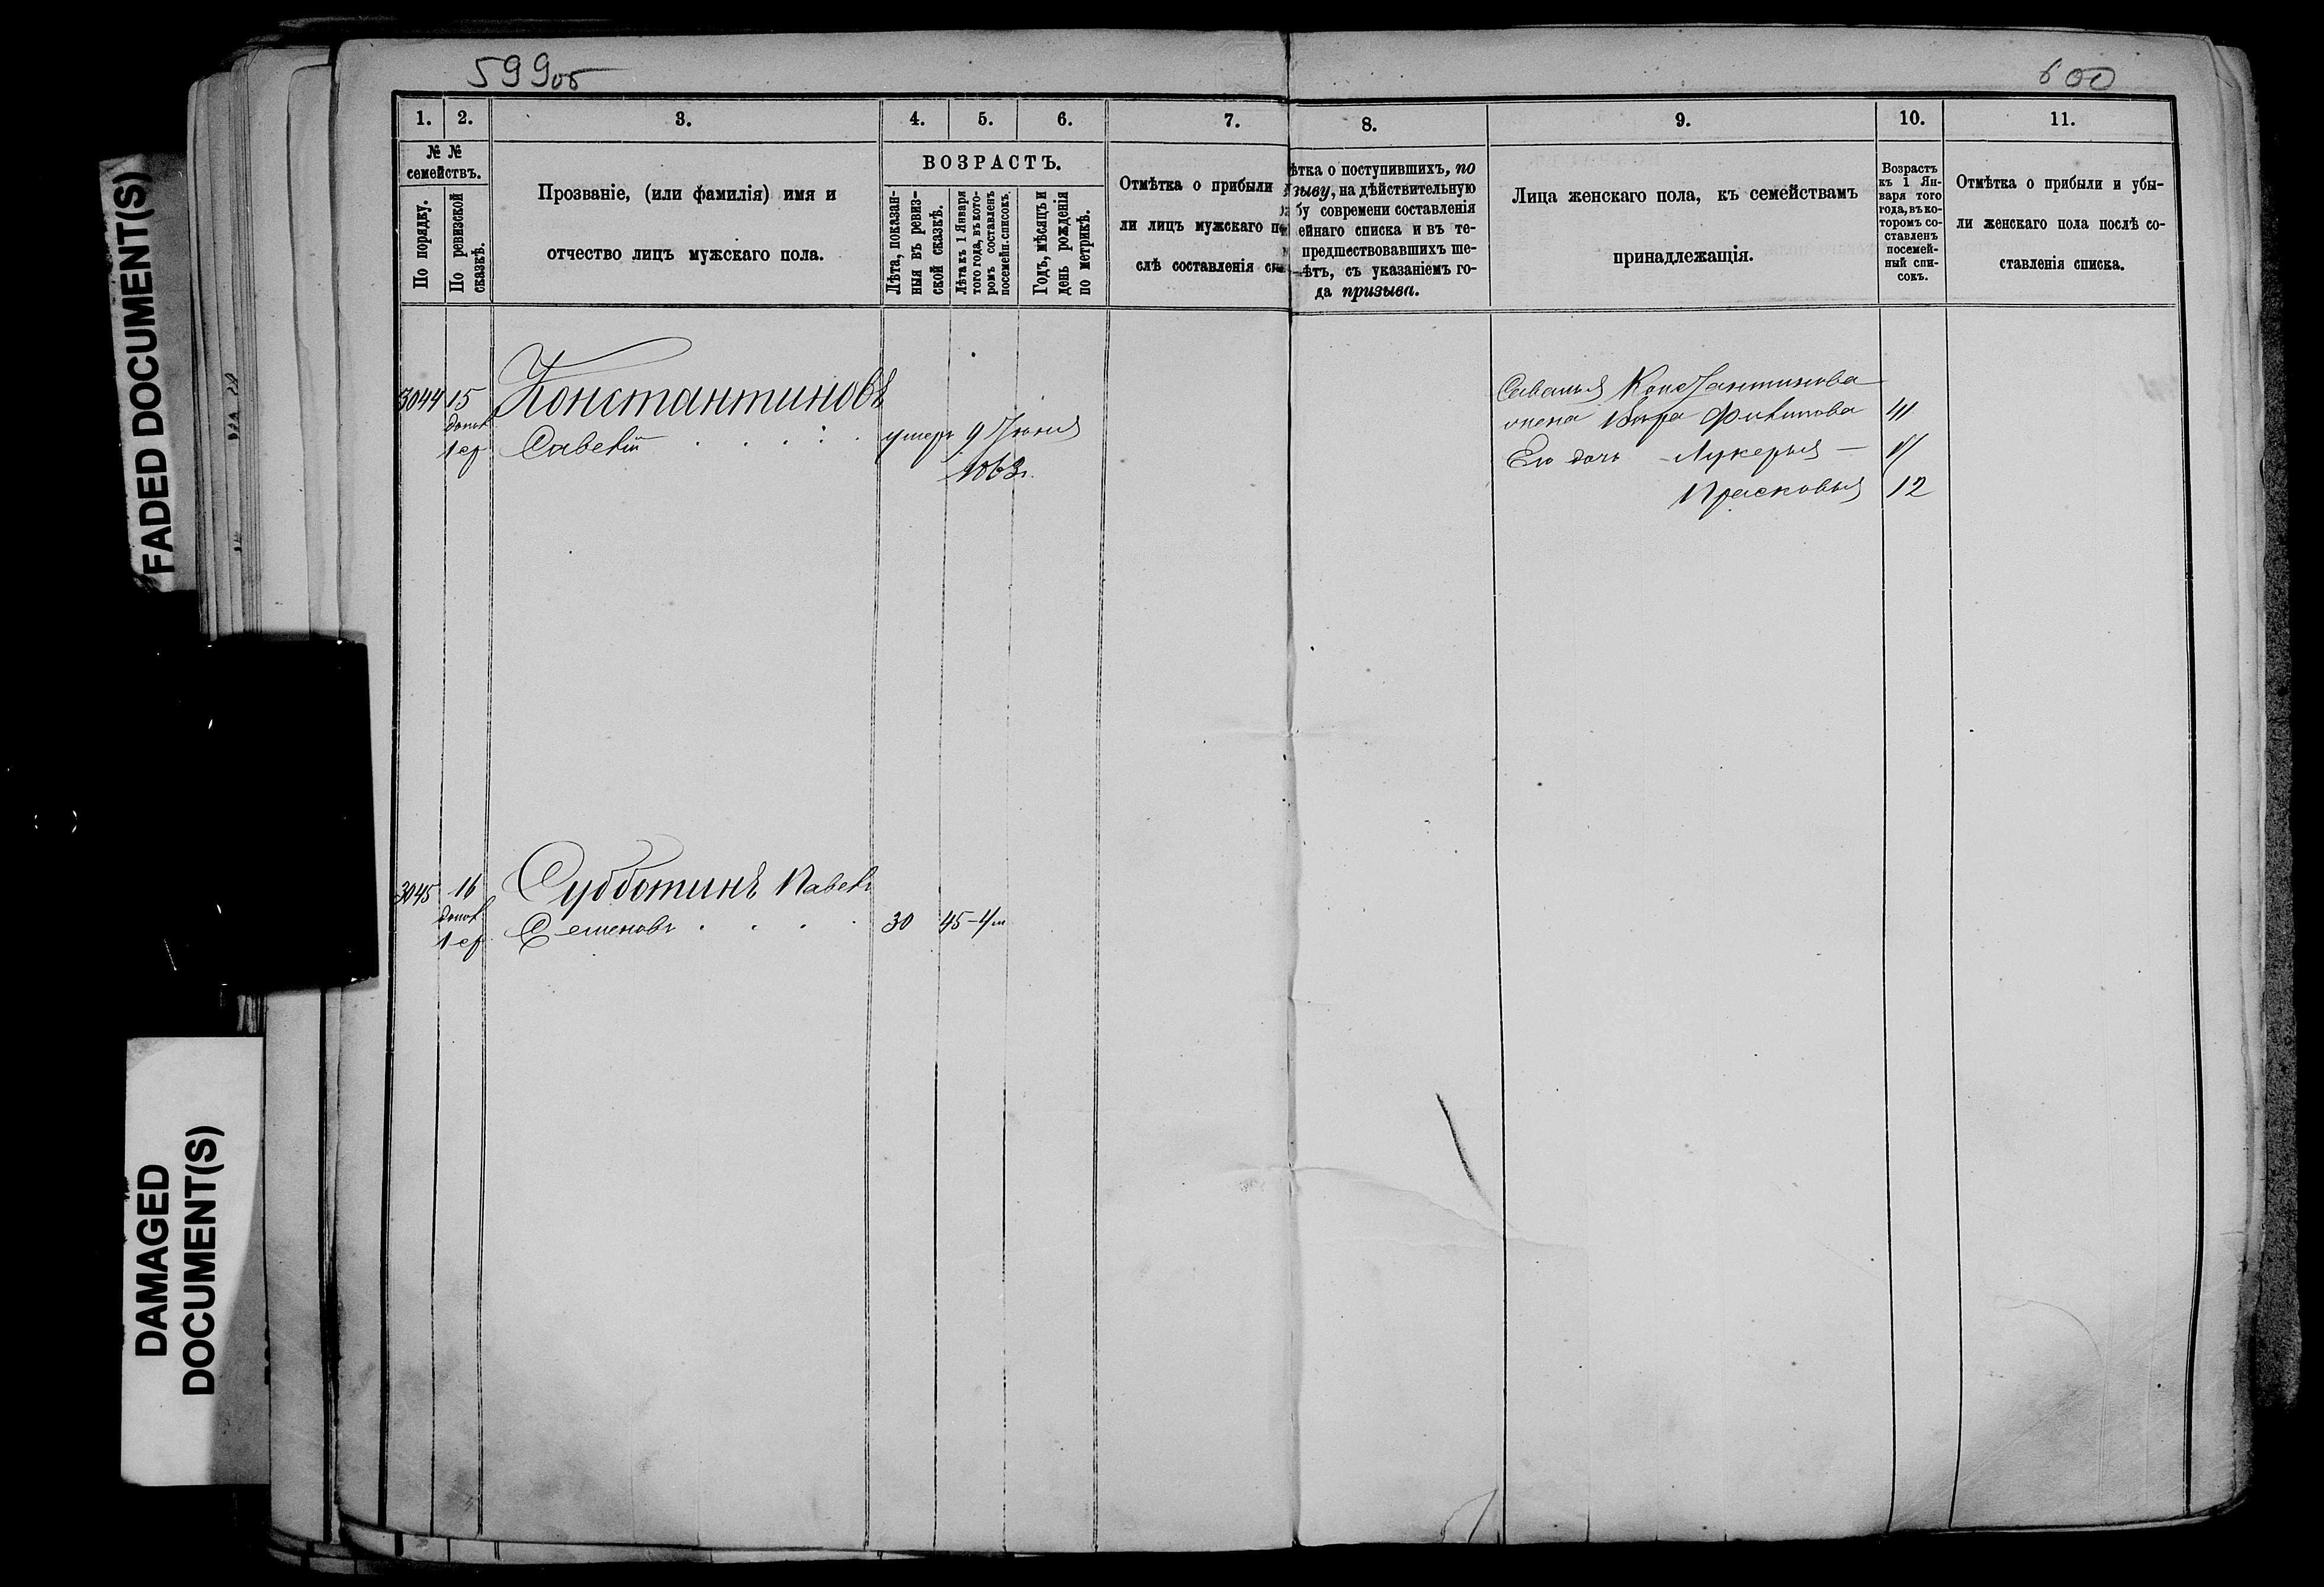 599об
600
1. 2. 3. 4. 5. 6. 7. 8. 9. 10. 11.
№ №
семействъ.
По порядку.
По ревизской
сказкѣ.
Прозваніе, (или фамилія) имя и
отчество лицъ мужскаго пола.
ВОЗРАСТЪ.
Лѣта, показан-
ныя въ ревиз-
ской сказкѣ.
Лѣта къ 1 Января
того года, въ кото-
ромъ составленъ
посемейн. списокъ.
Годъ, мѣсяцъ и
день рожденія
по метрикѣ.
Отмѣтка о прибыли
ли лицъ мужскаго по
слѣ составленія спи
ѣтка о поступившихъ, по
зыву, на дѣйствительную
бу современи составленія
ейнаго списка и въ те-
предшествовавшихъ ше-
ѣтъ, съ указаніемъ го-
да призыва.
Лица женскаго пола, къ семействамъ
принадлежащія.
Возрастъ
къ 1 Ян-
варя того
года, въ ко-
торомъ со-
ставленъ
посемей-
ный спи-
сокъ.
Отмѣтка о прибыли и убы-
ли женскаго пола послѣ со-
ставленія списка.
3044 15 Константиновъ
допол
1 ср Савелій умеръ 9 Іюня
1863г.
Савелья Константинова
жена Вѣра Филипова 41
Его дочь Лукерья —
Прасковья 12
3045 16 Субботинъ Павелъ
допол
1 ср. Семеновъ 30 45-4/м
FADED DOCUMENT(S)
DAMAGED
DOCUMENT(S)